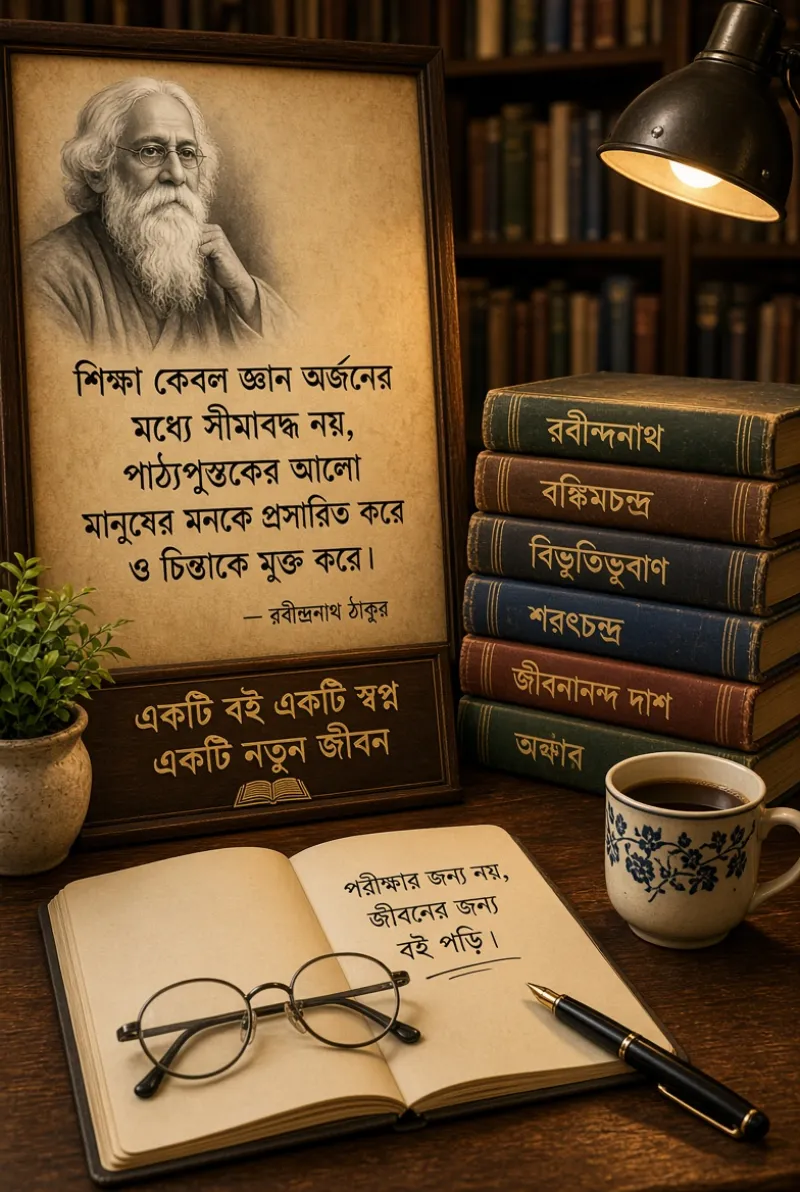 শিক্ষা কেবল জ্ঞান অর্জনের
মধ্যে সীমাবদ্ধ নয়,
পাঠ্যপুস্তকের আলো
মানুষের মনকে প্রসারিত করে
ও চিন্তাকে মুক্ত করে।
— রবীন্দ্রনাথ ঠাকুর
একটি বই একটি স্বপ্ন
একটি নতুন জীবন
রবীন্দনাথ
বঙ্কিমচন্দ্র
বিভুতিভুবাণ
শরৎচন্দ্র
জীবনানন্দ দাশ
পরীক্ষার জন্য নয়,
জীবনের জন্য
বই পড়ি।